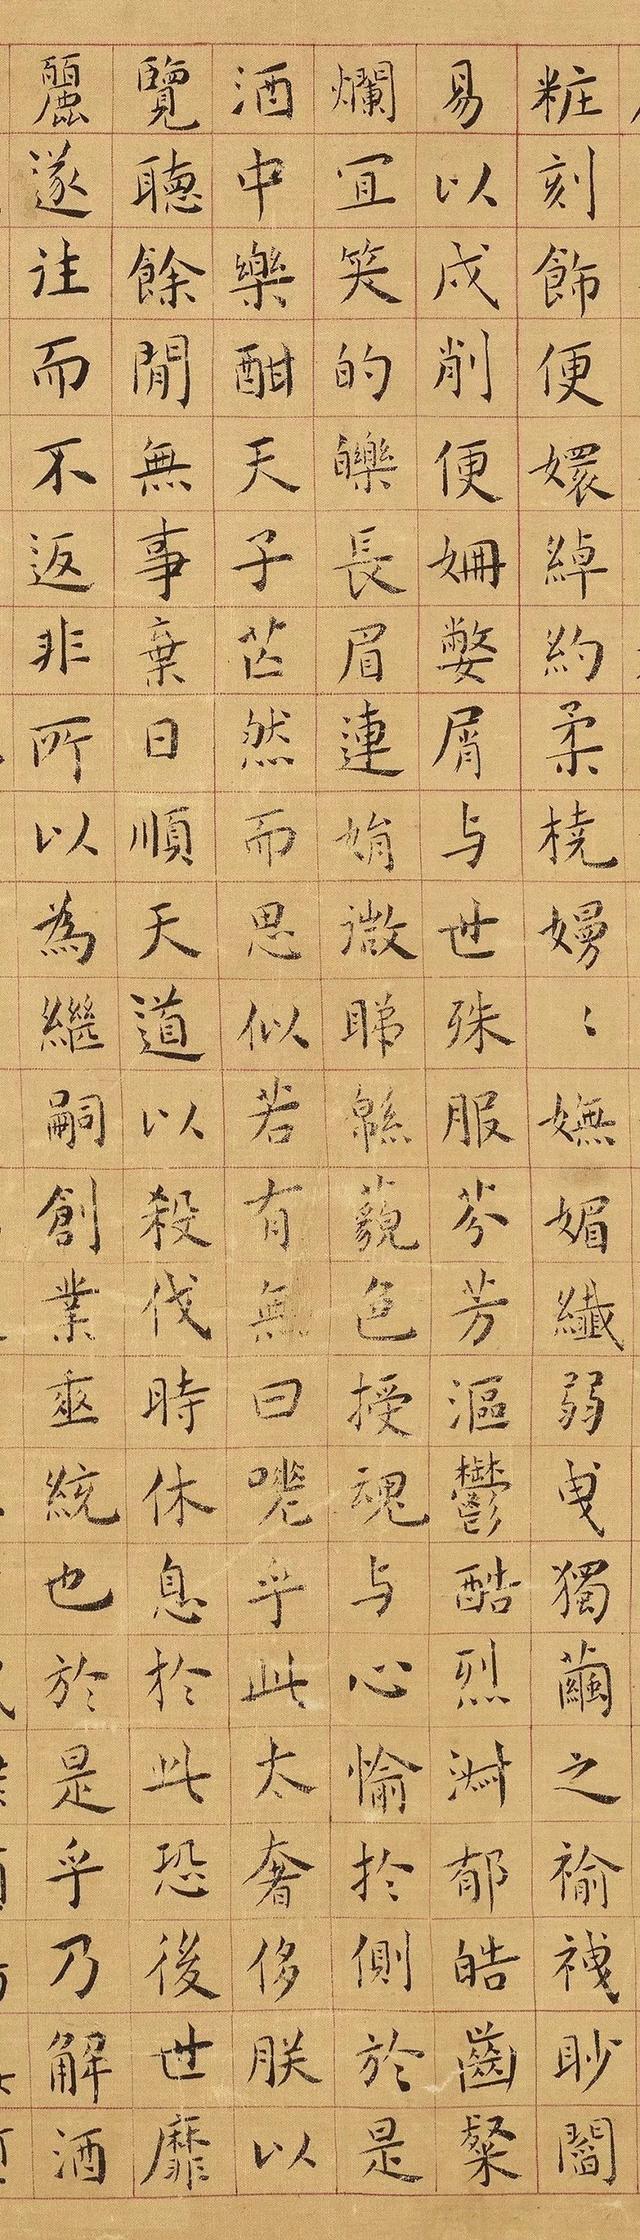 粧刻飾便嬛綽約柔橈嫚〻嫵媚纖弱曵獨繭之褕袣眇閻
易以戌削便姍嫳屑与世殊服芬芳漚鬱酷烈淑郁皓齒粲
爛宜笑的皪長眉連娟微睇緜藐色授魂与心愉於側於是
酒中樂酣天子芒然而思似若有無曰嗟乎此太奢侈朕以
覽聽餘閒無事棄日順天道以殺伐時休息於此恐後世靡
麗遂往而不返非所以為繼嗣創業垂統也於是乎乃解酒